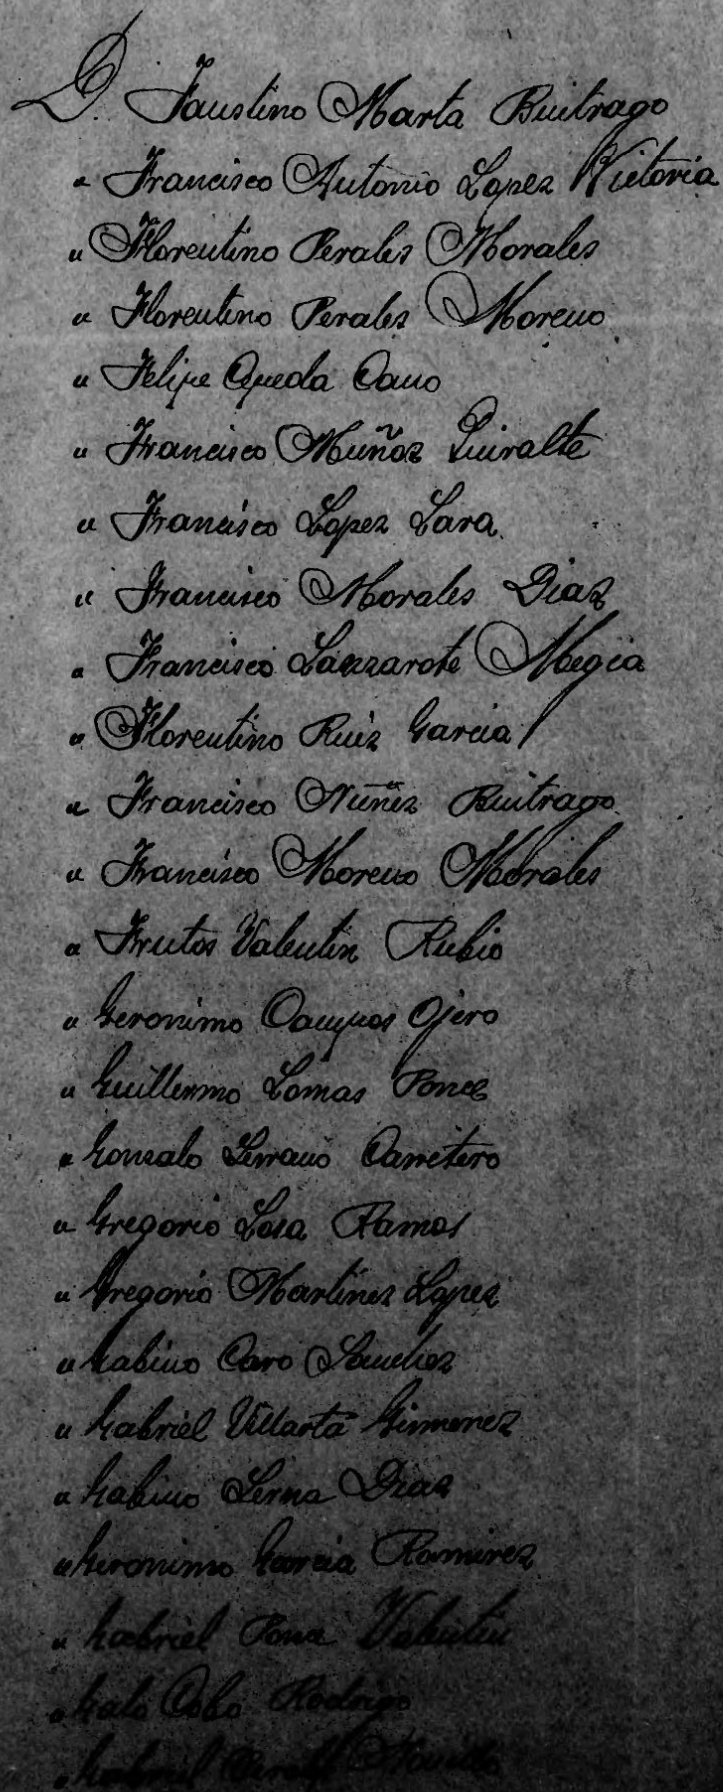 D. Faustino Marta Buitrago
" Francisco Antonio Lopez Victoria
" Florentino Perales Morales
" Florentino Perales Moreno
" Felipe Ojeda Cano
" Francisco Muñoz Quiralte
" Francisco Lopez Lara
" Francisco Morales Diaz
" Francisco Lanzarote Megia
" Florentino Ruiz Garcia
" Francisco Nuñez Buitrago
" Francisco Moreno Morales
" Frutos Valentin Rubio
" Geronimo Campos Ojero
" Guillermo Lomas Ponce
" Gonzalo Serrano Carretero
" Gregorio Losa Ramos
" Gregorio Martinez Lopez
" Gabino Caro Sanchez
" Gabriel Villarta Gimenez
" Gabino Serna Diaz
" Geronimo Garcia Ramirez
" Gabriel Valentin
" Cobo Rodrigo
" Gabriel